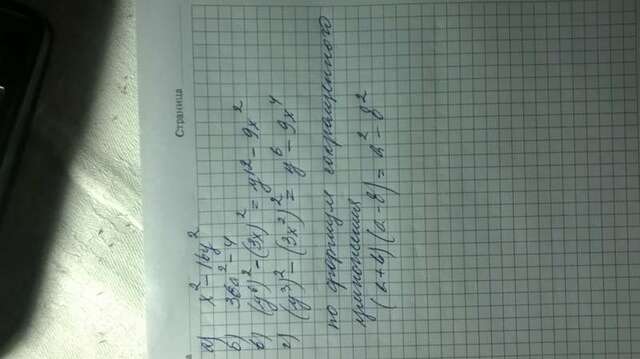 Страница
а) x² - 16y²
б) 36a² - 4
в) (y⁶)² - (3x)² = y¹² - 9x²
г) (y³)² - (3x²)² = y⁶ - 9x⁴
по формуле сокращенного
умножения
(a+b)(a-b) = a² - b²